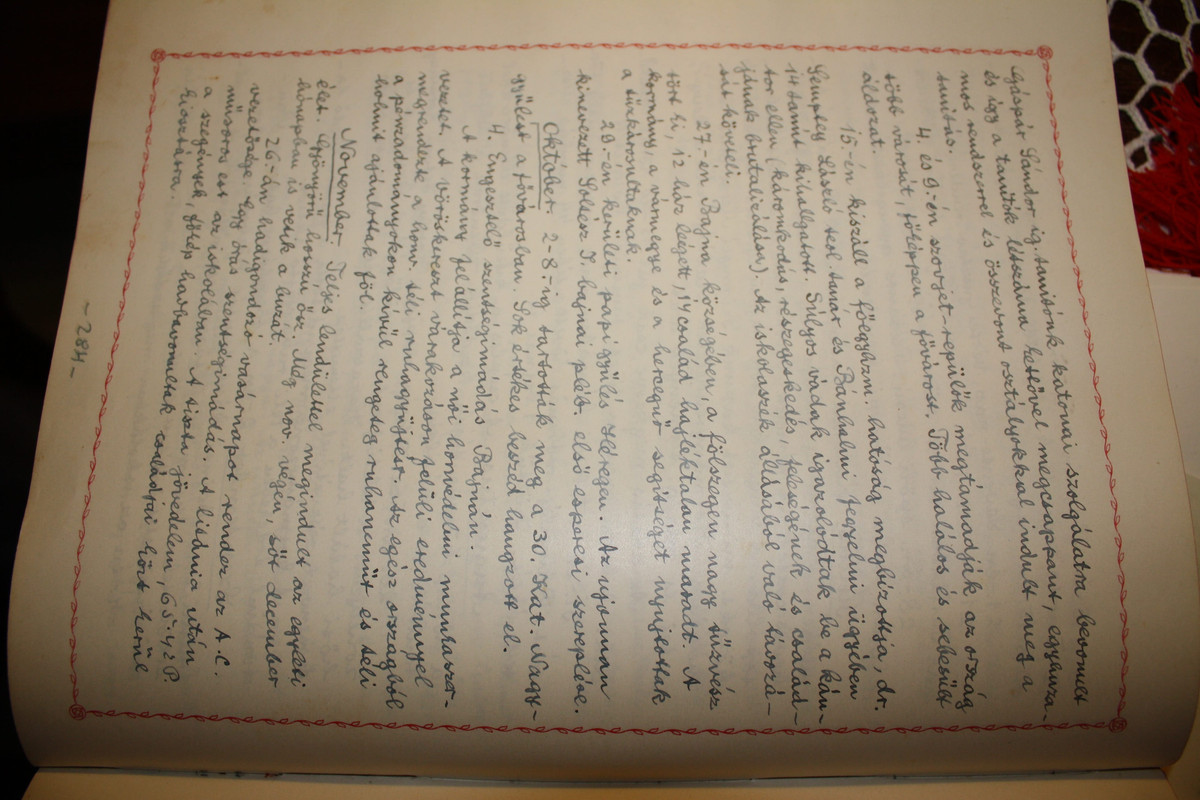 Gáspár Sándor ig. tanítónk katonai szolgálatra bevonult
és így a tanítók létszáma kettővel megcsappant, egyhuza-
mos rendszerrel és összevont osztályokkal indult meg a
tanítás.
4. és 9.-én szovjet-repülők megtámadják az ország
több városát, főképpen a fővárost. Több halálos és sebesült
áldozat.
15.-én kiszállt a főegyházm. hatóság megbízottja, dr.
Lászlo tesl tanár és Bánhalmi fegyelmi ügyében
14 tanút kihallgatott. Súlyos vádak igazolódtak be a kán-
tor ellen (káromkodás, részegeskedés, feleségének és család-
jának brutalizálása). Az iskolaszék állásából való távozá-
sát követeli.
27.-én Bajna községében, a fölszegen nagy tűzvész
tört ki, 12 ház leégett, 14 család hajléktalan maradt. A
kormány, a vármegye és a hercegnő segítséget nyujtottak
a tűzkárosultaknak.
29.-én kerületi papi gyűlés Héregen. Az ujonnan
kinevezett Soltész I. bajnai pléb. első esperesi szereplése.
Október. 2-8.-ig tartották meg a 30. Kat. Nagy-
gyűlést a fővárosban. Sok értékes beszéd hangzott el.
4. Engesztelő szentségimádás Bajnán.
A kormány felállítja a női honvédelmi munkaszer-
vezetet. A vöröskereszt várakozáson felüli eredménnyel
megrendezte a honv. téli ruhagyüjtést. Az egész országból
a pénzadományokon kívül rengeteg ruhaneműt és téli
holmit ajánlottak föl.
November. Teljes lendülettel megindult az egyleti
élet. Gyönyörű hosszú ősz. Még nov. végén, sőt december
hónapban is vetik a buzát.
26-án hadigondozó vasárnapot rendez az A.C.
vezetősége. Egy órás szentségimádás. A litánia után
műsoros est az iskolában. A tiszta jövedelem, 65.42 P.
a szegények, főkép hadbavonultak családjai közt kerül
kiosztásra.
- 284 -